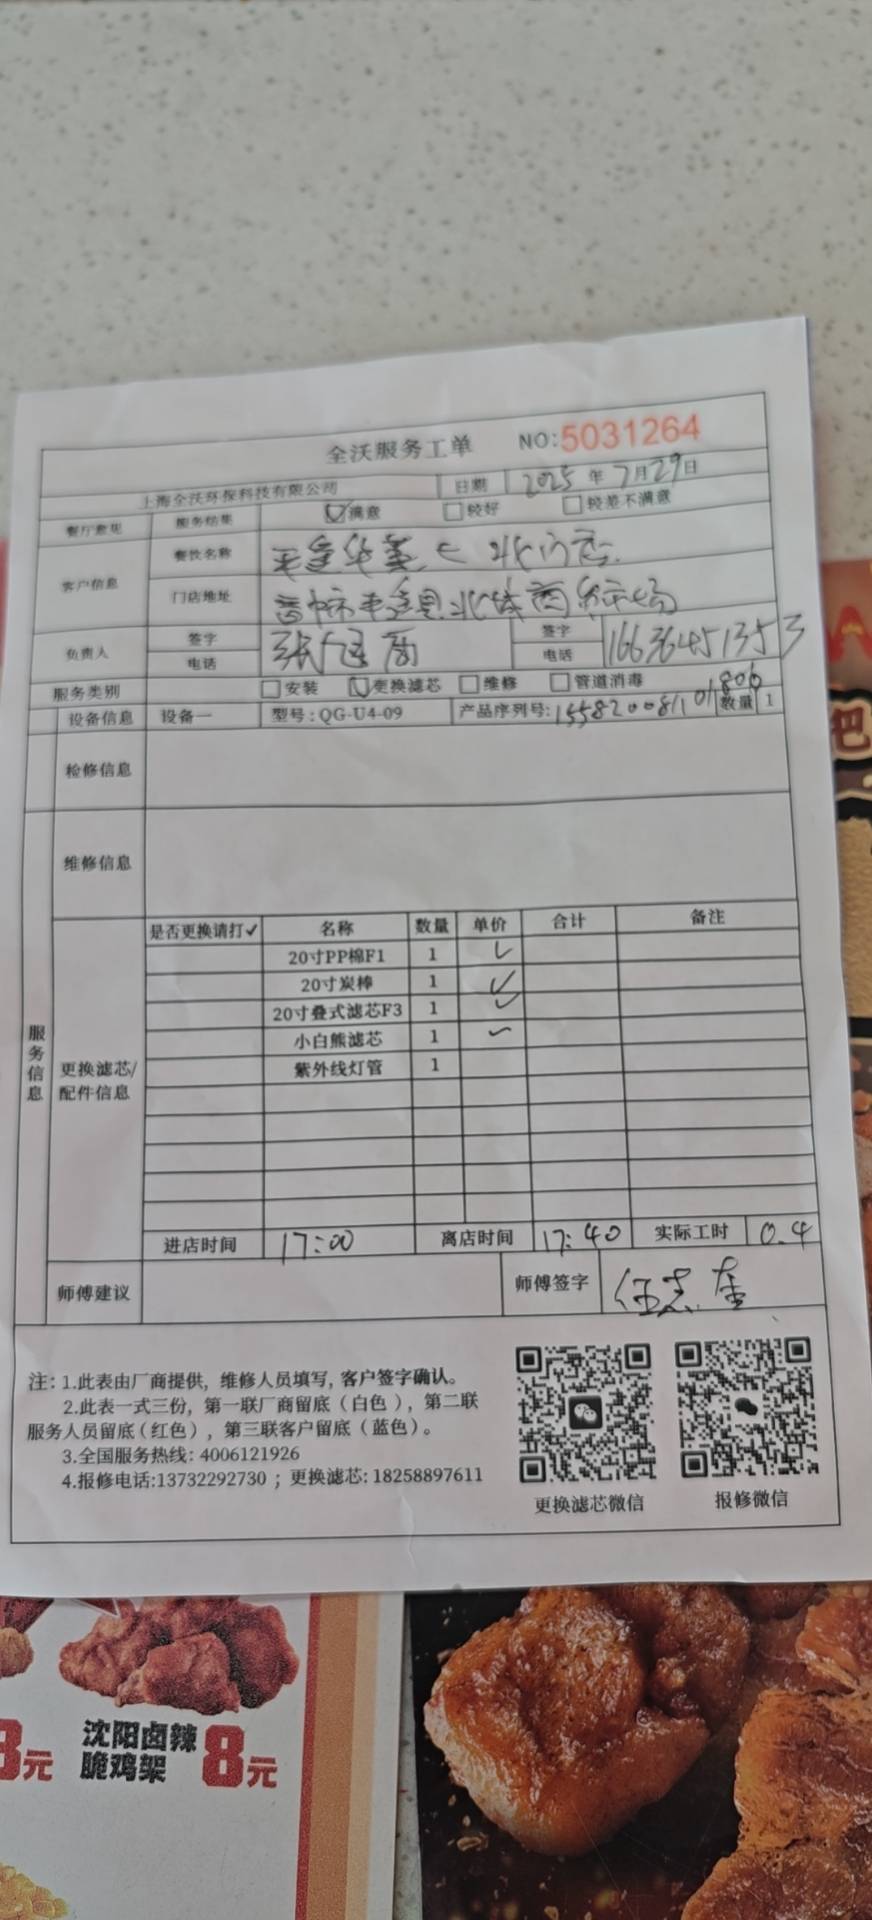 全沃服务工单 NO:5031264
上海全沃环保科技有限公司 日期 2025年7月29日
餐厅意见 服务结果 ☑满意 □较好 □较差不满意
客户信息 餐饮名称 平遥华莱士北门店
门店地址 晋中市平遥县北城商贸市场
负责人 签字 张 签字
电话 电话 16636451353
服务类别 □安装 ☑更换滤芯 □维修 □管道消毒
设备信息 设备一 型号:QG-U4-09 产品序列号:155820081101806 数量 1
检修信息
维修信息
服务信息
更换滤芯/配件信息
是否更换请打✓ 名称 数量 单价 合计 备注
20寸PP棉F1 1 ✓
20寸炭棒 1 ✓
20寸叠式滤芯F3 1 ✓
小白熊滤芯 1 ✓
紫外线灯管 1
进店时间 17:00 离店时间 17:40 实际工时 0.4
师傅建议 师傅签字 任志奎
注: 1.此表由厂商提供, 维修人员填写, 客户签字确认。
2.此表一式三份, 第一联厂商留底(白色), 第二联
服务人员留底(红色), 第三联客户留底(蓝色)。
3.全国服务热线: 4006121926
4.报修电话:13732292730 ; 更换滤芯: 18258897611
更换滤芯微信 报修微信
把
3元
沈阳卤辣
脆鸡架
8元